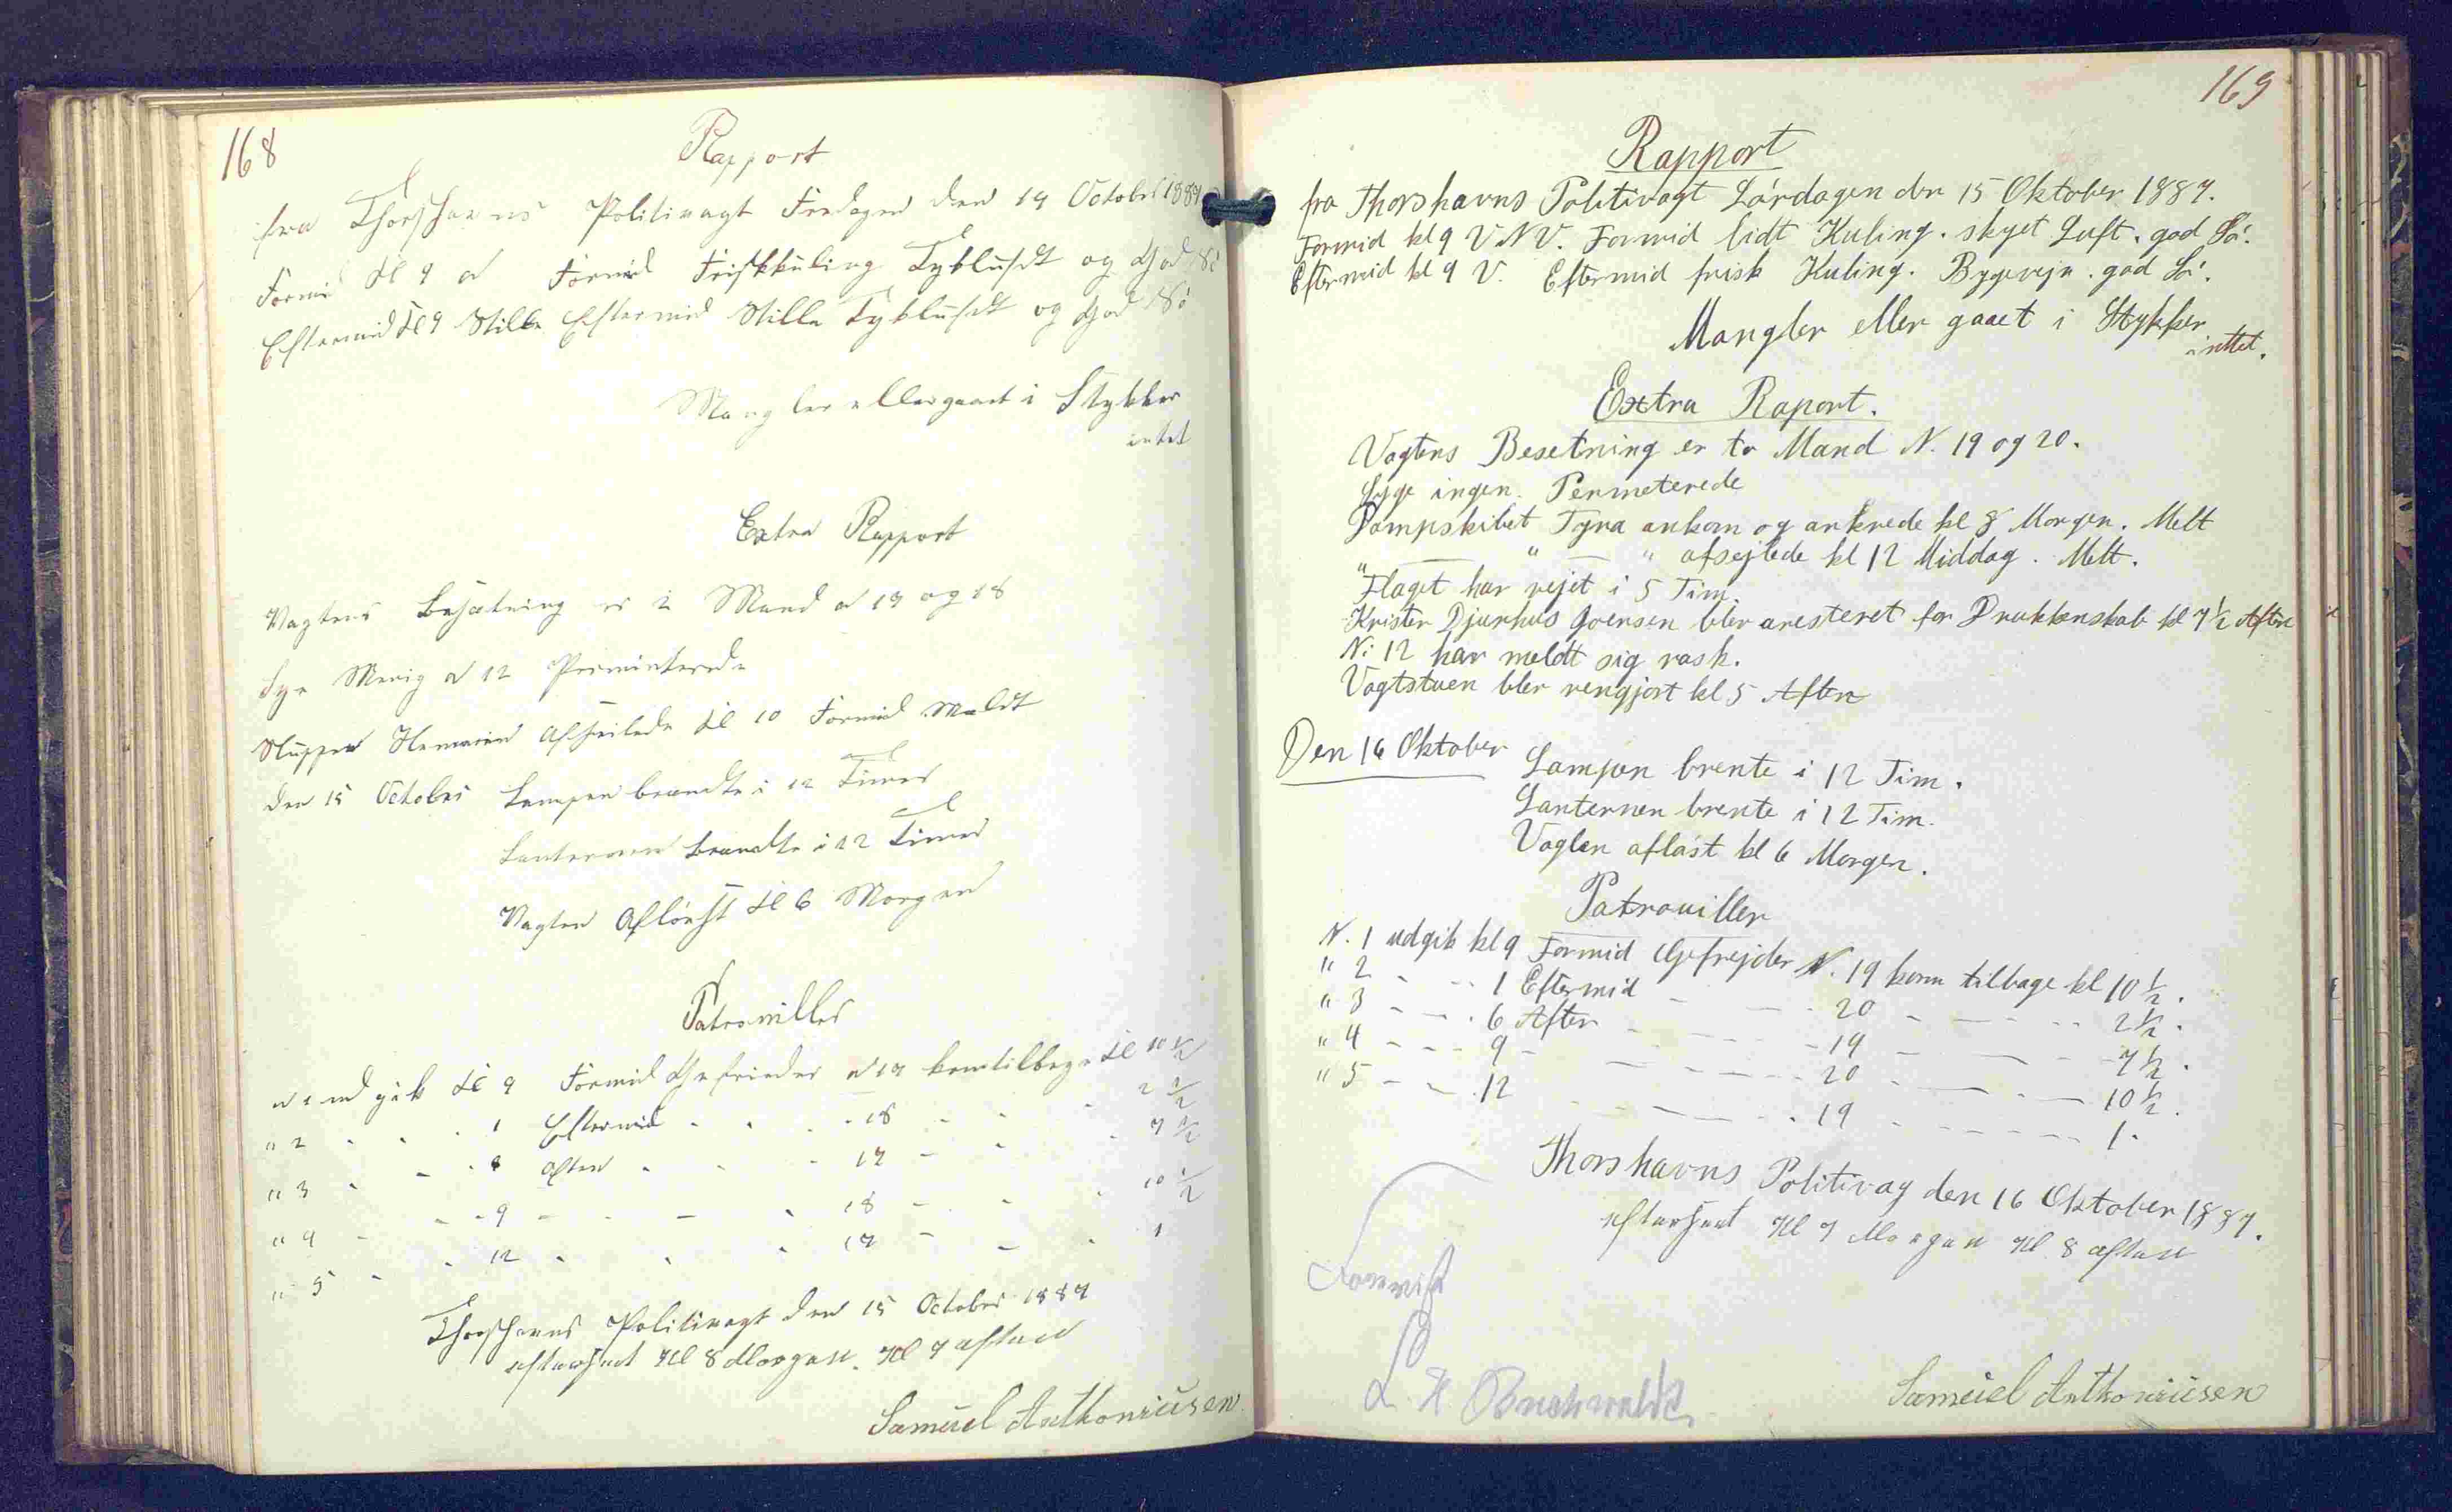 168
Rapport
fra Thorshavns Politivagt Fredagen den 14 October 1887
Formid Kl 9 N Formid Friskkuling Tykluft og God Sö
Eftermid Kl 9 Stille Eftermid Stille Tykluft og God Sö
Mangler eller gaaet i Stykker
intet
Extra Rapport
Vagtens Besætning er 2 Mand N 17 og 18
Syge Menig N 12 Perminterede
Sluppen afseilede Kl 10 Formid Meldt
Den 15 October Lampen brændte i 12 Timer
Lanternen brændte i 12 Timer
Vagten Aflöst Kl 6 Morgen
Patrouiller
N 1 udgik Kl 9 Formid Gefreider N 17 kom tilbage Kl 10 1/2
" 2 - - - 1 Eftermid - - - 18 - - - 2 1/2
" 3 - - - 6 Aften - - - 17 - - - 7 1/2
" 4 - - - 9 - - - 18 - - - 10 1/2
" 5 - - - 12 - - - 17 - - - 1
Thorshavns Politivagt den 15 October 1887
efterseet Kl 8 Morgen. Kl 7 aften
Samuel Anthoniusen
169
Rapport
fra Thorshavns Politivagt Lördagen den 15 Oktober 1887.
Formid kl 9 V.N.V. Formid lidt Kuling. skyet Luft. god Sö.
Eftermid kl 9 V. Eftermid frisk Kuling. Bygevejr. god Sö.
Mangler eller gaaet i Stykker
inttet.
Extra Raport.
Vagtens Besetning er to Mand N. 19 og 20.
Syge ingen. Permeterede
Dampskibet Tyra ankom og ankrede kl 8 Morgen. Melt
" — " — " afsejlede kl 12 Middag. Melt.
Flaget har vejet i 5 Tim.
Krister Djurhus Joensen blev aresteret for Drukkenskab kl 7 1/2 Aften
N: 12 har meldt sig rask.
Vagtstuen blev rengjort kl 5 Aften
Den 16 Oktober
Lampen brente i 12 Tim.
Lanternen brente i 12 Tim.
Vagten aflöst kl 6 Morgen.
Patrouiller
N. 1 udgik kl 9 Formid Gefrejder N. 19 kom tilbage kl 10 1/2.
" 2 - - - 1 Eftermid - - - 20 - - - 2 1/2.
" 3 - - - 6 Aften - - - 19 - - - 7 1/2.
" 4 - - - 9 - - - 20 - - - 10 1/2.
" 5 - - - 12 - - - 19 - - - 1.
Thorshavns Politivag den 16 Oktober 1887.
efterseet Kl 7 Morgen Kl 8 aften
L H Buchwaldt
Samuel Anthoniusen